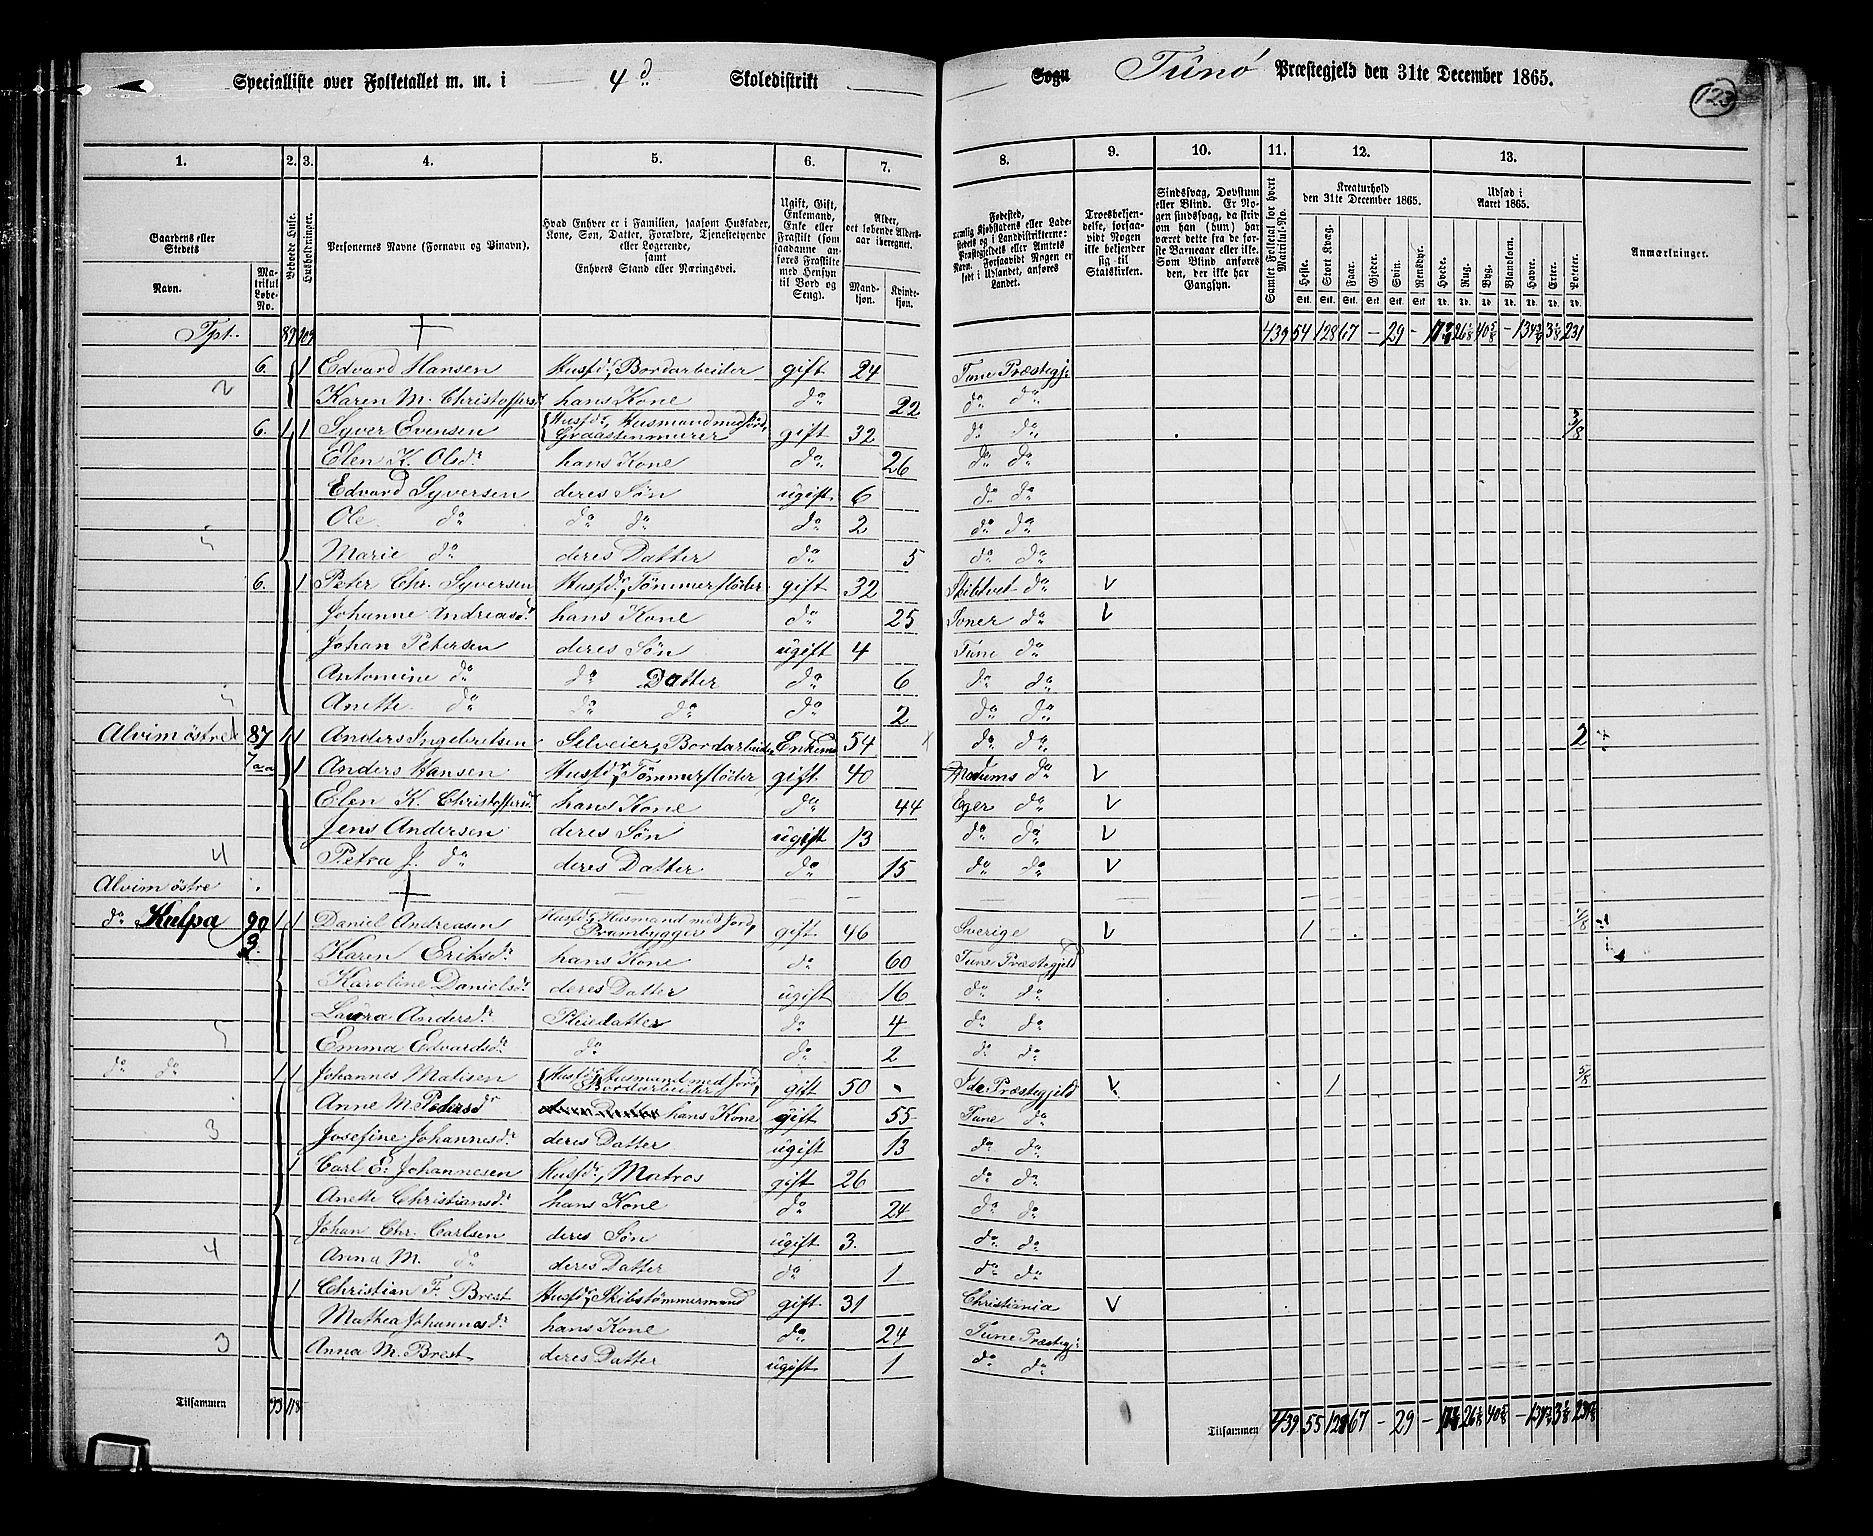 Specialliste over Folketallet m. m. i 4dᵉ Skoledistrikt
Sogn Tunø Præstegjeld den 31te December 1865.
123
1. 2. 3. 4. 5. 6. 7. 8. 9. 10. 11. 12. 13.
Gaardens eller Stedets
Navn.
Matrikul Løbe-No.
Beboede Huse.
Husholdninger.
Personernes Navne (Fornavn og Tilnavn).
Hvad Enhver er i Familien, saasom Husfader, Kone, Søn, Datter, Forældre, Tjenestetyende eller Logerende, samt Enhvers Stand eller Næringsvei.
Ugift, Gift, Enkemand, Enke eller Fraskilt (som saadanne anføres Fraskilte med Hensyn til Bord og Seng).
Alder, det løbende Aldersaar iberegnet.
Mandkjøn.
Kvindekjøn.
Fødested, nemlig Kjøbstadens eller Ladestedets og i Landdistrikterne: Præstegjeldets eller Amtets Navn. Forsaavidt Nogen er født i Udlandet, anføres Landet.
Troesbekjendelse, forsaavidt Nogen ikke bekjender sig til Statskirken.
Sindssvag, Døvstum eller Blind. Er Nogen sindssvag, da skriv om han (hun) har været dette fra de første Barneaar eller ikke. Som Blind anføres den, der ikke har Gangsyn.
Samlet Folketal for hvert Matrikul-No.
Kreaturhold den 31te December 1865.
Heste. Stort Kvæg. Faar. Gjeder. Svin. Rensdyr.
Stk. Stk. Stk. Stk. Stk. Stk.
Udsæd i Aaret 1865.
Hvede. Rug. Byg. Blandkorn. Havre. Erter. Poteter.
Td. Td. Td. Td. Td. Td. Td.
Anmærkninger.
Tpt. 439 54 128 67 - 29 - 231
6. 1 Edvard Hansen Husfdr, Bordarbeider gift 24 Tune Præstegj:
2 Karen M. Christoffersdr hans Kone do 22 do do
6. 1 1 Syver Evensen Husfdr, Husmand med Jord, Graastenmurer gift 32 do do 3/8
Elen K. Olsdr hans Kone do 26 do do
Edvard Syversen deres Søn ugift 6 do do
Ole do do do do 2 do do
5 Marie do deres Datter do 5 do do
6. 1 1 Peter Chr. Syversen Husfdr, Tømmerfløder gift 32 Skibtvet do V
Johanne Andreasdr hans Kone do 25 Soner do V
Johan Petersen deres Søn ugift 4 Tune do
Antomine do do Datter do 6 do do
5 Anette do do do do 2 do do
Alvim østre 87 1 1 Anders Ingebretsen Selveier, Bordarbeider Enkem 54 do do 2
7aa 1 Anders Hansen Husfdr, Tømmerfløder gift 40 Modums do V
Elen K. Christoffersdr hans Kone do 44 Eger do V
Jens Andersen deres Søn ugift 13 do do V
4 Petra J. do deres Datter do 15 do do V
Alvim østre
do Kulpa 90 1 1 Daniel Andreasen Husfdr Husmand med Jord, Prambygger gift 46 Sverige V 1 7/8
3. Karen Eriksdr hans Kone do 60 Tune Præstegjeld
Karoline Danielsdr deres Datter ugift 16 do do
Laura Andersdr Pleiedatter do 4 do do
5 Emma Edvardsdr do do 2 do do
do do 1 1 Johannes Matisen Husfdr, Husmand med Jord, Bordarbeider gift 50 Ide Præstegjeld V 1 5/8
Anne M. Pedersdr hans Kone gift 55 Tune do
3 Josefine Johannesdr deres Datter ugift 13 do do
1 Carl E: Johannesen Husfdr, Matros gift 26 do do
Anette Christiansdr hans Kone do 24 do do
Johan Chr. Carlsen deres Søn ugift 3. do do
4 Anna M. do deres Datter do 1 do do
1 Christian F. Brest Husfdr, Skibstømmermand gift 31 Christiania V
Mathea Johannesdr hans Kone do 24 Tune Præstegj:
3 Anna M. Brest deres Datter ugift 1 do do
Tilsammen 93 118
Tilsammen 439. 55 129 67 - 29 -